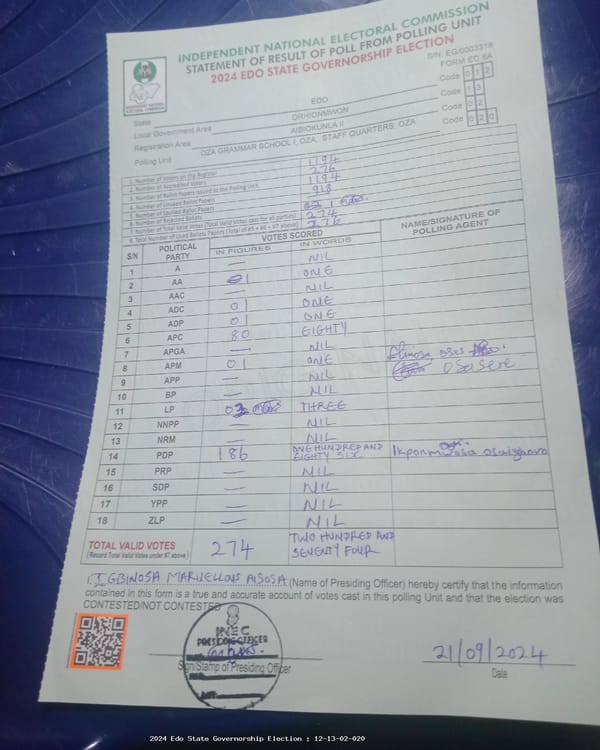 INDEPENDENT NATIONAL ELECTORAL COMMISSION
STATEMENT OF RESULT OF POLL FROM POLLING UNIT
2024 EDO STATE GOVERNORSHIP ELECTION
S/N: EG/0003318
FORM EC 8A
State EDO Code 012
Local Government Area ORHIONMWON Code 13
Registration Area AIBIOKUNLA II Code 02
Polling Unit OZA GRAMMAR SCHOOL I, OZA, STAFF QUARTERS, OZA Code 020
1. Number of Voters on the Register 1194
2. Number of Accredited Voters 276
3. Number of Ballot Papers Issued to the Polling Unit 1194
4. Number of Unused Ballot Papers 918
5. Number of Spoiled Ballot Papers
6. Number of Rejected Ballots
7. Number of Total Valid Votes (Total Valid Votes cast for all parties) 274
8. Total Number of Used Ballots Papers (Total of #5 + #6 + #7 above) 276
S/N POLITICAL PARTY VOTES SCORED NAME/SIGNATURE OF POLLING AGENT
IN FIGURES IN WORDS
1 A — NIL
2 AA 01 ONE
3 AAC — NIL
4 ADC 01 ONE
5 ADP 01 ONE
6 APC 80 EIGHTY
7 APGA — NIL
8 APM 01 ONE
9 APP — NIL Osasere
10 BP — NIL
11 LP 03 THREE
12 NNPP — NIL
13 NRM — NIL
14 PDP 186 ONE HUNDRED AND EIGHTY SIX
15 PRP — NIL
16 SDP — NIL
17 YPP — NIL
18 ZLP — NIL
TOTAL VALID VOTES 274 TWO HUNDRED AND SEVENTY FOUR
(Record Total Valid Votes under #7 above)
I, IGBINOSA MARVELLOUS AISOSA (Name of Presiding Officer) hereby certify that the information
contained in this form is a true and accurate account of votes cast in this polling Unit and that the election was
CONTESTED/NOT CONTESTED
INEC
PRESIDING OFFICER
Sign/Stamp of Presiding Officer
21/09/2024
Date
2024 Edo State Governorship Election : 12-13-02-020